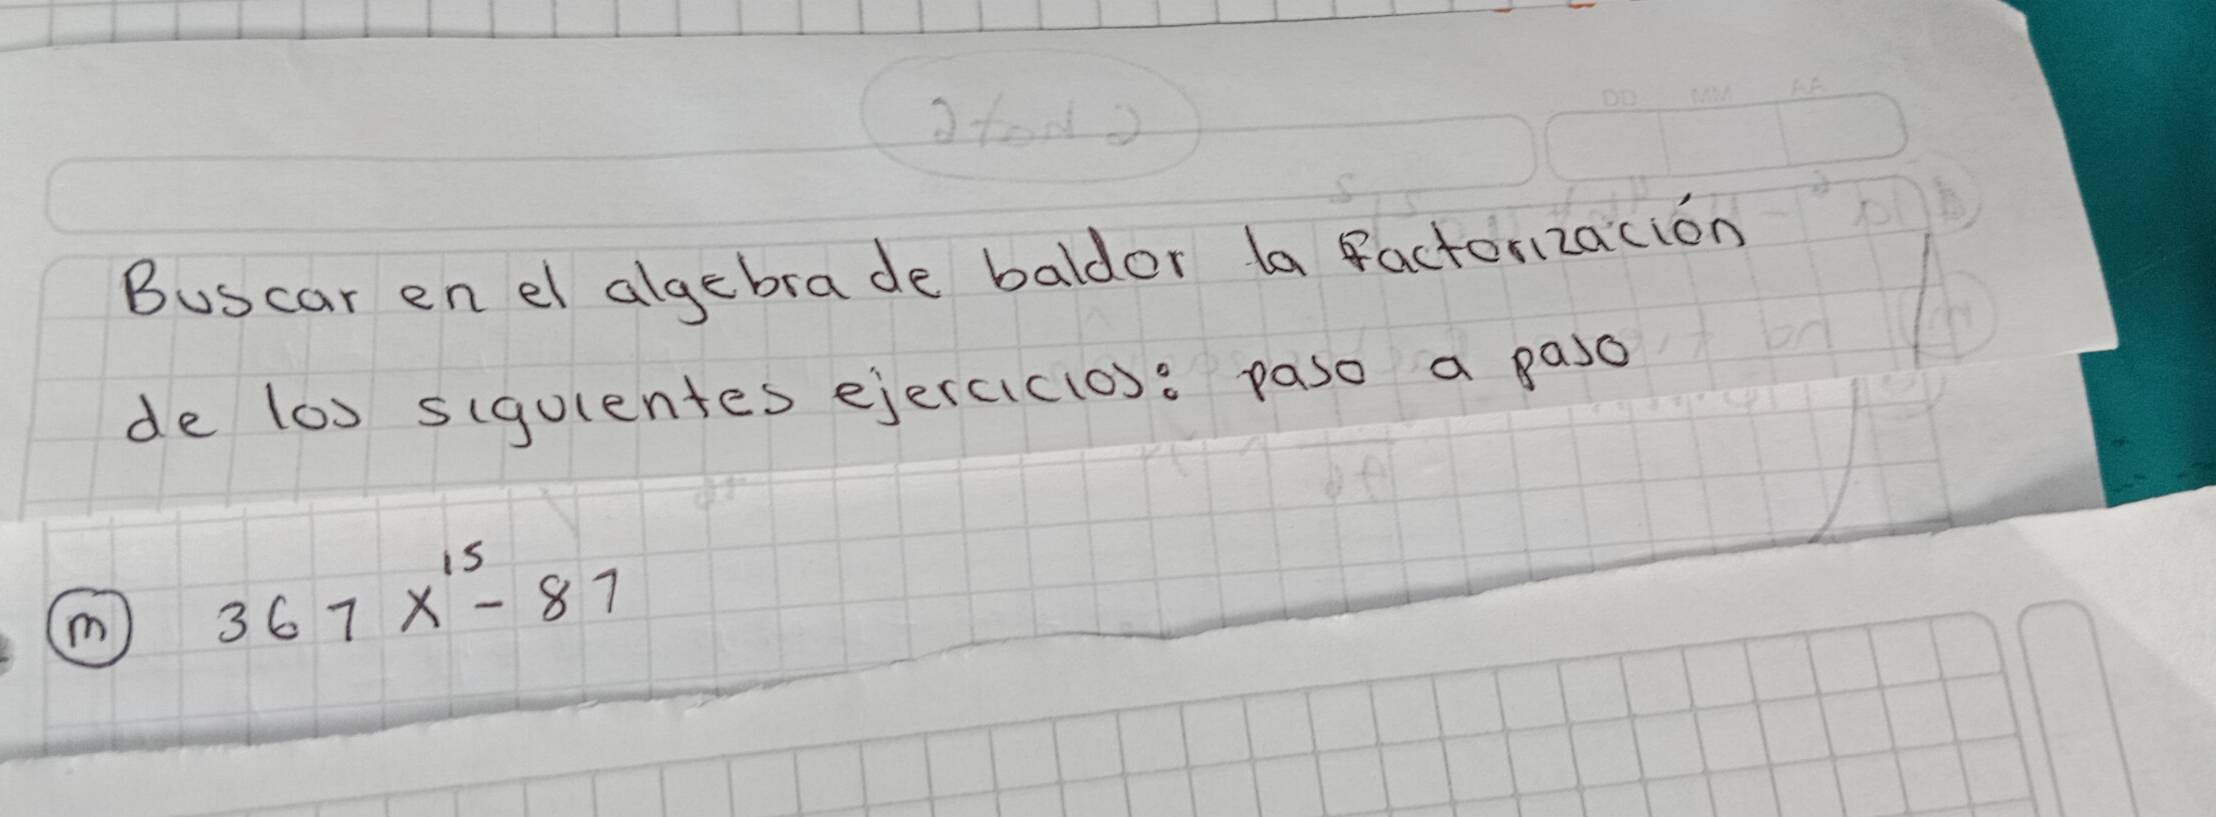 DD MM AA
Buscar en el algebra de baldor la Factorización
de los siguientes ejercicios: paso a paso
m 367 x¹⁵ - 87